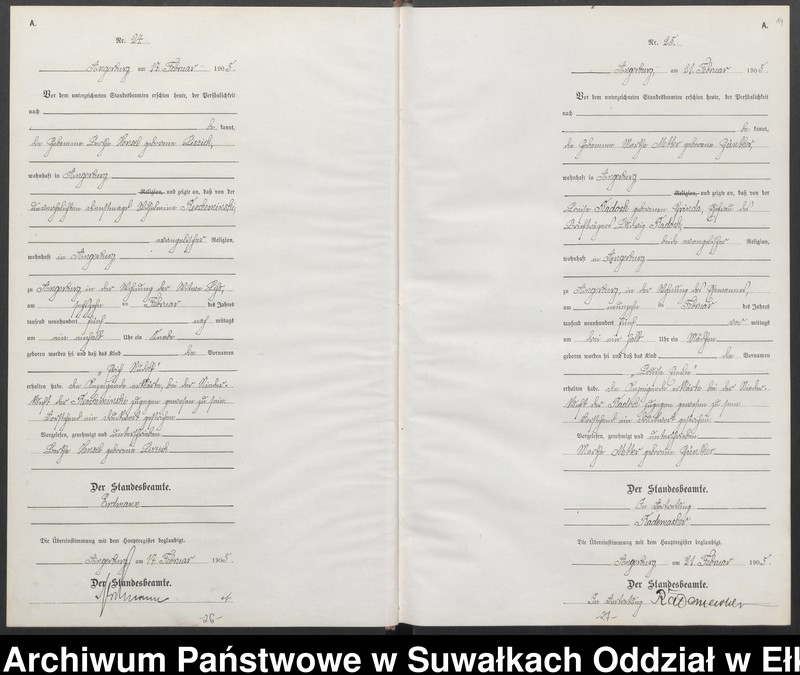 A.
Nr. 24.
Angerburg am 17. Februar 1905.
Vor dem unterzeichneten Standesbeamten erschien heute, der Persönlichkeit
nach
be kannt,
die Hebamme geborene
wohnhaft in Angerburg
Religion, und zeigte an, daß von der
unverehelichten Dienstmagd Wilhelmine
evangelischer Religion,
wohnhaft in Angerburg
zu Angerburg in der Wohnung der
am sechszehn ten Februar des Jahres
tausend neunhundert fünf nach mittags
um ein einhalb Uhr ein Knabe
geboren worden sei und daß das Kind die Vornamen
erhalten habe. Die Anzeigende erklärte, bei der Nieder-
kunft der zugegen gewesen zu sein.
Vorstehend ein Druckwort gestrichen
Vorgelesen, genehmigt und unterschrieben
geborene
Der Standesbeamte.
Erdmann
Die Übereinstimmung mit dem Hauptregister beglaubigt.
Angerburg am 17. Februar 1905.
Der Standesbeamte.
Erdmann
-26-
A.
14
Nr. 25.
Angerburg, am 21. Februar 1905.
Vor dem unterzeichneten Standesbeamten erschien heute, der Persönlichkeit
nach
be kannt,
die Hebamme Martha geborene Günther,
wohnhaft in Angerburg
Religion, und zeigte an, daß von der
Louise Kadoch geborenen Ehefrau des
Briefträgers Ludwig Kadoch,
beide evangelischer Religion,
wohnhaft in Angerburg
zu Angerburg, in der Wohnung des Ehemannes,
am neunzehn ten Februar des Jahres
tausend neunhundert fünf vor mittags
um drei ein halb Uhr ein Mädchen
geboren worden sei und daß das Kind die Vornamen
erhalten habe. Die Anzeigende erklärte bei der Nieder-
kunft der Kadoch zugegen gewesen zu sein.
Vorstehend ein Druckwort gestrichen
Vorgelesen, genehmigt und unterschrieben
Martha geborene Günther
Der Standesbeamte.
In Vertretung
Rademacher
Die Übereinstimmung mit dem Hauptregister beglaubigt.
Angerburg am 21. Februar 1905.
Der Standesbeamte.
In Vertretung Rademacher
-27-
Archiwum Państwowe w Suwałkach Oddział w Ełk